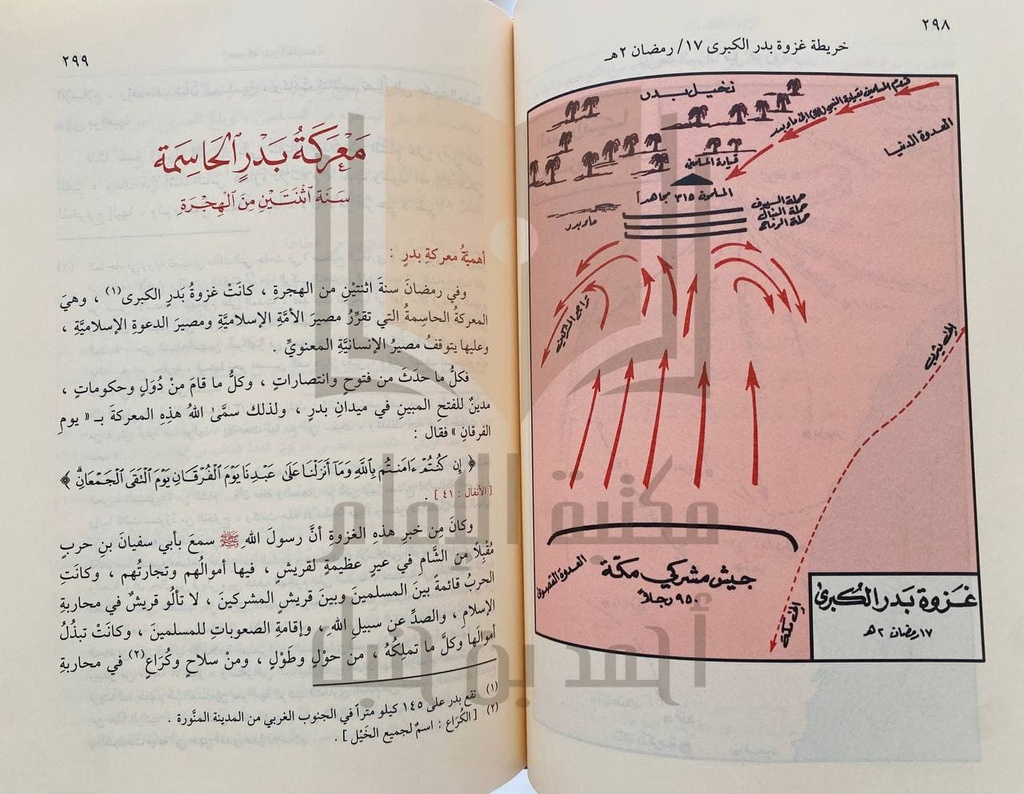 ٢٩٨
خريطة غزوة بدر الكبرى ١٧/ رمضان ٢هـ
نخيل بدر
قدوم المسلمين بقيادة النبي (ﷺ) إلى ماء بدر
العدوة الدنيا
قيادة المسلمين
المسلمون ٣١٥ مجاهداً
حملة السيوف
حملة النبال
حملة الرماح
ماء بدر
تراجع المشركين
إلى يثرب
العدوة القصوى
جيش مشركي مكة
٩٥٠ رجلاً
إلى مكة
غزوة بدر الكبرى
١٧ رمضان ٢هـ
٢٩٩
مَعْرَكَةُ بَدْرٍ الْحَاسِمَة
سَنَةَ اثْنَتَيْنِ مِنَ الْهِجْرَةِ
أهميَّةُ معركةِ بدرٍ :
وفي رمضانَ سنةَ اثنتيْنِ من الهجرةِ ، كانَتْ غزوةُ بَدرٍ الكبرى(١) ، وهيَ
المعركةُ الحاسِمةُ التي تقرِّرُ مصيرَ الأمَّةِ الإسلاميَّةِ ومصيرَ الدعوةِ الإسلاميَّةِ ،
وعليها يتوقفُ مصيرُ الإنسانيَّةِ المعنويِّ .
فكلُّ ما حدَثَ من فتوحٍ وانتصاراتٍ ، وكلُّ ما قامَ مِنْ دُوَلٍ وحكوماتٍ ،
مدينٌ للفتحِ المبينِ في ميدانِ بدرٍ ، ولذلكَ سمَّىٰ اللهُ هذِهِ المعركةَ بـ « يومِ
الفرقانِ » فقال :
﴿ إِن كُنتُمْ ءَامَنتُم بِاللَّهِ وَمَا أَنزَلْنَا عَلَىٰ عَبْدِنَا يَوْمَ الْفُرْقَانِ يَوْمَ الْتَقَى الْجَمْعَانِ ﴾
[الأنفال : ٤١] .
وكانَ مِن خبرِ هذِهِ الغزوةِ أنَّ رسولَ اللهِ ﷺ سمعَ بأبي سفيانَ بنِ حربٍ
مُقْبِلاً من الشَّامِ في عيرٍ عظيمةٍ لقريشٍ ، فيها أموالُهم وتجارتُهم ، وكانَتِ
الحربُ قائمةً بينَ المسلمينَ وبينَ قريشٍ المشركينَ ، لا تألُو قريشٌ في محاربةِ
الإسلامِ ، والصدِّ عن سبيلِ اللهِ ، وإقامةِ الصعوباتِ للمسلمينَ ، وكانَتْ تبذُلُ
أموالَها وكلَّ ما تملِكُهُ ، من حَوْلٍ وطَوْلٍ ، ومنْ سلاحٍ وكُرَاعٍ(٢) في محاربةِ
(١) تقع بدر على ١٤٥ كيلو متراً في الجنوب الغربي من المدينة المنَّورة .
(٢) [الكُرَاع : اسمٌ لجميع الخَيْل] .
مكتبة الإمام
أحمد بن حنبل